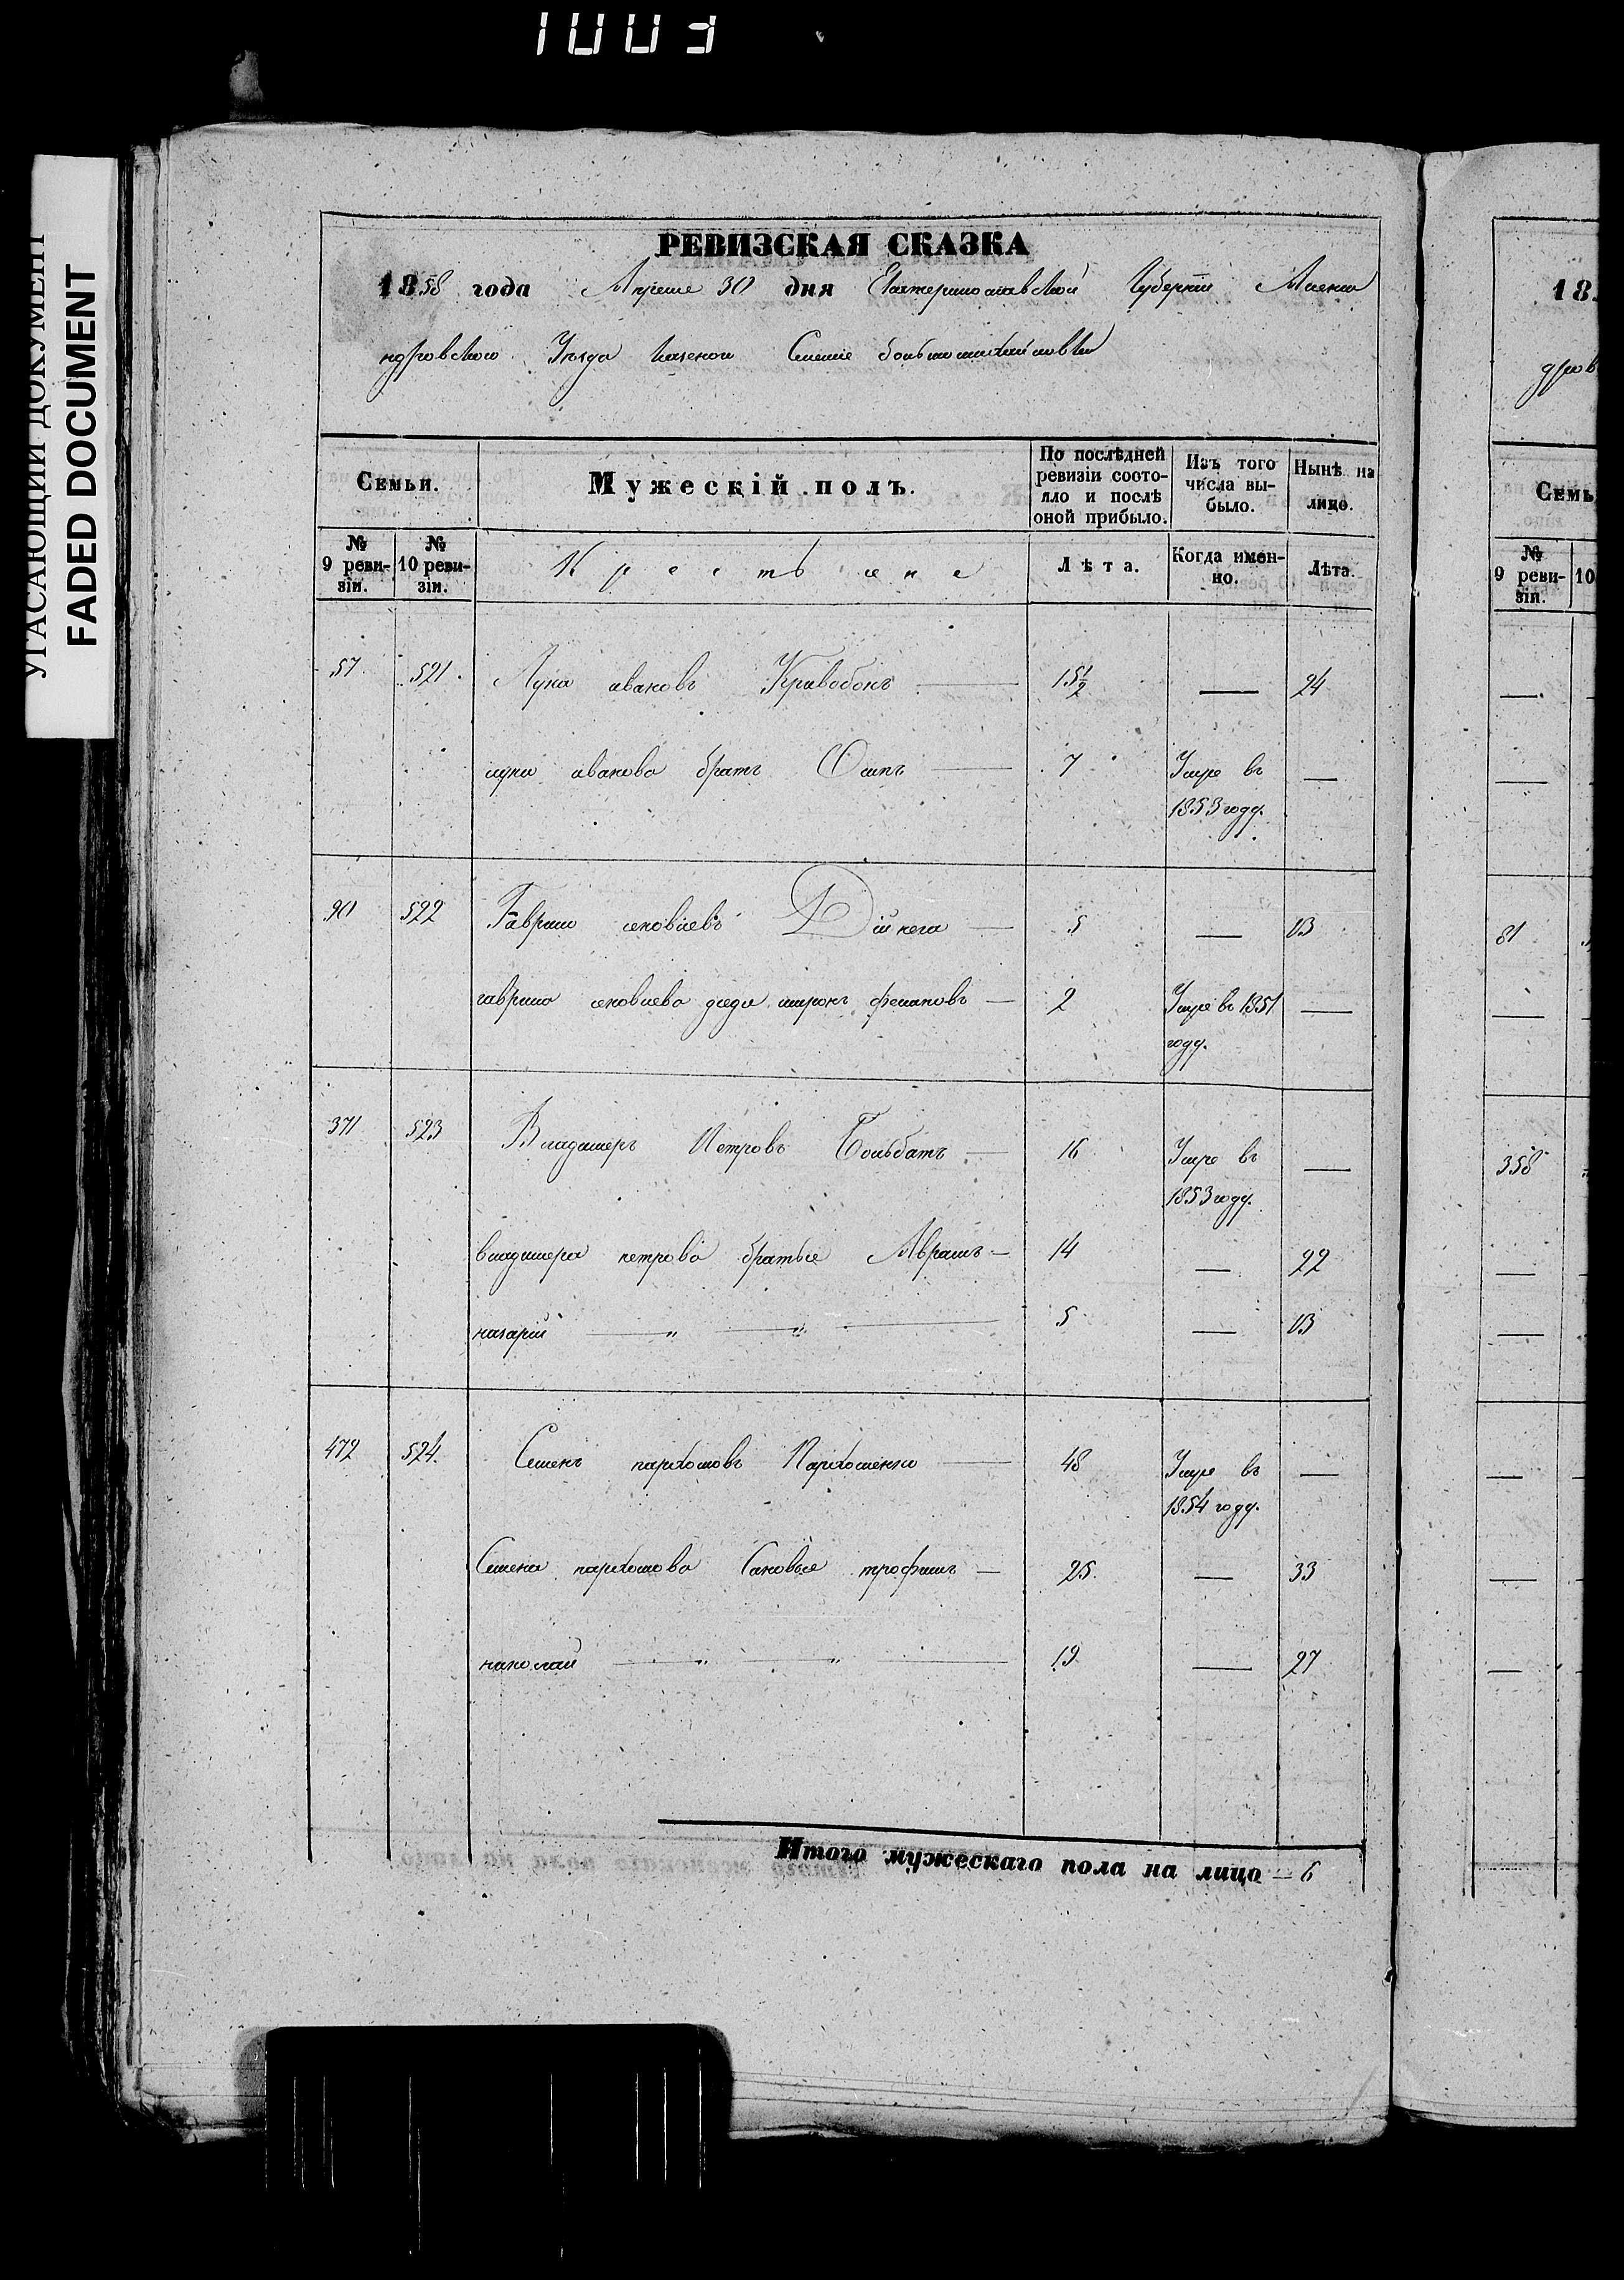 1003
УГАСАЮЩИЙ ДОКУМЕНТ
FADED DOCUMENT
РЕВИЗСКАЯ СКАЗКА
1858 года Апреля 30 дня Екатеринославской Губернии Алекса
ндровского Уезда казеной Селение большомихайловки
Семьи. Мужескій полъ. По послѣдней ревизіи состояло и послѣ оной прибыло. Изъ того числа выбыло. Нынѣ на лицо.
№ 9 ревизіи. № 10 ревизіи. Крестьяне Лѣта. Когда именно. Лѣта.
57 521 Лука ивановъ Кравобокъ — 15½ — 24
луки иванова братъ Осипъ — 7 Умре въ —
1853 году.
90 522 Гаврило яковлевъ — 5 — 13
гаврила яковлева дядя миронъ — 2 Умре въ 1851 —
году.
371 523 Владимеръ Петровъ Больбатъ — 16 Умре въ —
1853 году.
владимера петрова братья Абрамъ — 14 — 22
назарій — „ — „ — 5 — 13
472 524. Семенъ пархомовъ Пархоменко — 48 Умре въ —
1854 году.
Семена пархомова Сановья трофимъ — 25 — 33
николай — „ — „ — 19 — 27
Итого мужескаго пола на лицо — 6
18
дров
Семь
№ 9 ревизіи. 10
81
358